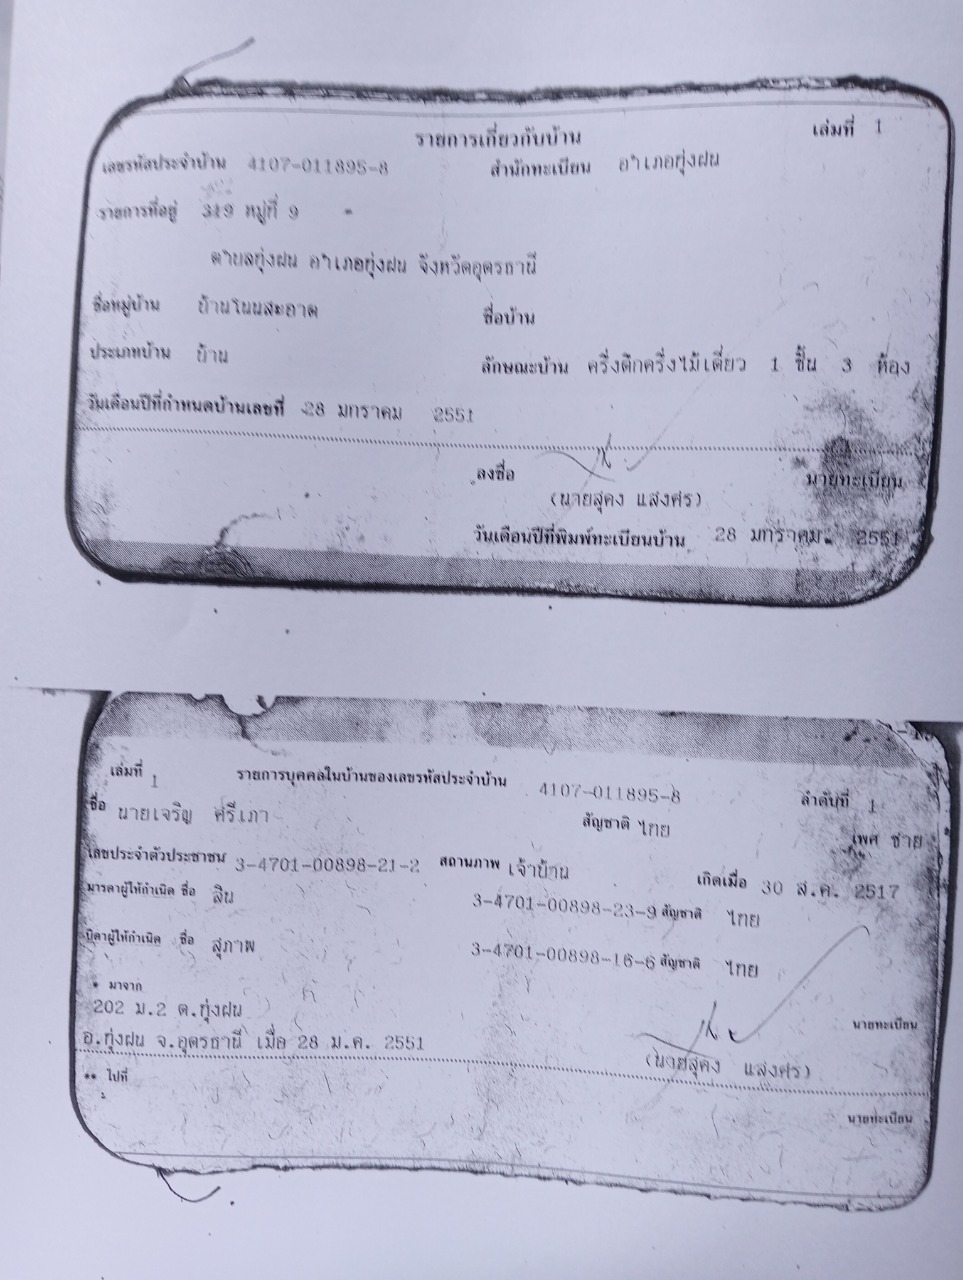 รายการเกี่ยวกับบ้าน เล่มที่ 1
เลขรหัสประจำบ้าน 4107-011895-8 สำนักทะเบียน อำเภอทุ่งฝน
รายการที่อยู่ 319 หมู่ที่ 9
ตำบลทุ่งฝน อำเภอทุ่งฝน จังหวัดอุดรธานี
ชื่อหมู่บ้าน บ้านโนนสะอาด ชื่อบ้าน
ประเภทบ้าน บ้าน ลักษณะบ้าน ครึ่งตึกครึ่งไม้เดี่ยว 1 ชั้น 3 ห้อง
วันเดือนปีที่กำหนดบ้านเลขที่ 28 มกราคม 2551
ลงชื่อ นายทะเบียน
(นายสุคง แสงศร)
วันเดือนปีที่พิมพ์ทะเบียนบ้าน 28 มกราคม 2551
เล่มที่ 1 รายการบุคคลในบ้านของเลขรหัสประจำบ้าน 4107-011895-8 ลำดับที่ 1
ชื่อ นายเจริญ ศรีเภา สัญชาติ ไทย เพศ ชาย
เลขประจำตัวประชาชน 3-4701-00898-21-2 สถานภาพ เจ้าบ้าน เกิดเมื่อ 30 ส.ค. 2517
มารดาผู้ให้กำเนิด ชื่อ สิน 3-4701-00898-23-9 สัญชาติ ไทย
บิดาผู้ให้กำเนิด ชื่อ สุภาพ 3-4701-00898-16-6 สัญชาติ ไทย
* มาจาก
202 ม.2 ต.ทุ่งฝน นายทะเบียน
อ.ทุ่งฝน จ.อุดรธานี เมื่อ 28 ม.ค. 2551 (นายสุคง แสงศร)
** ไปที่
นายทะเบียน